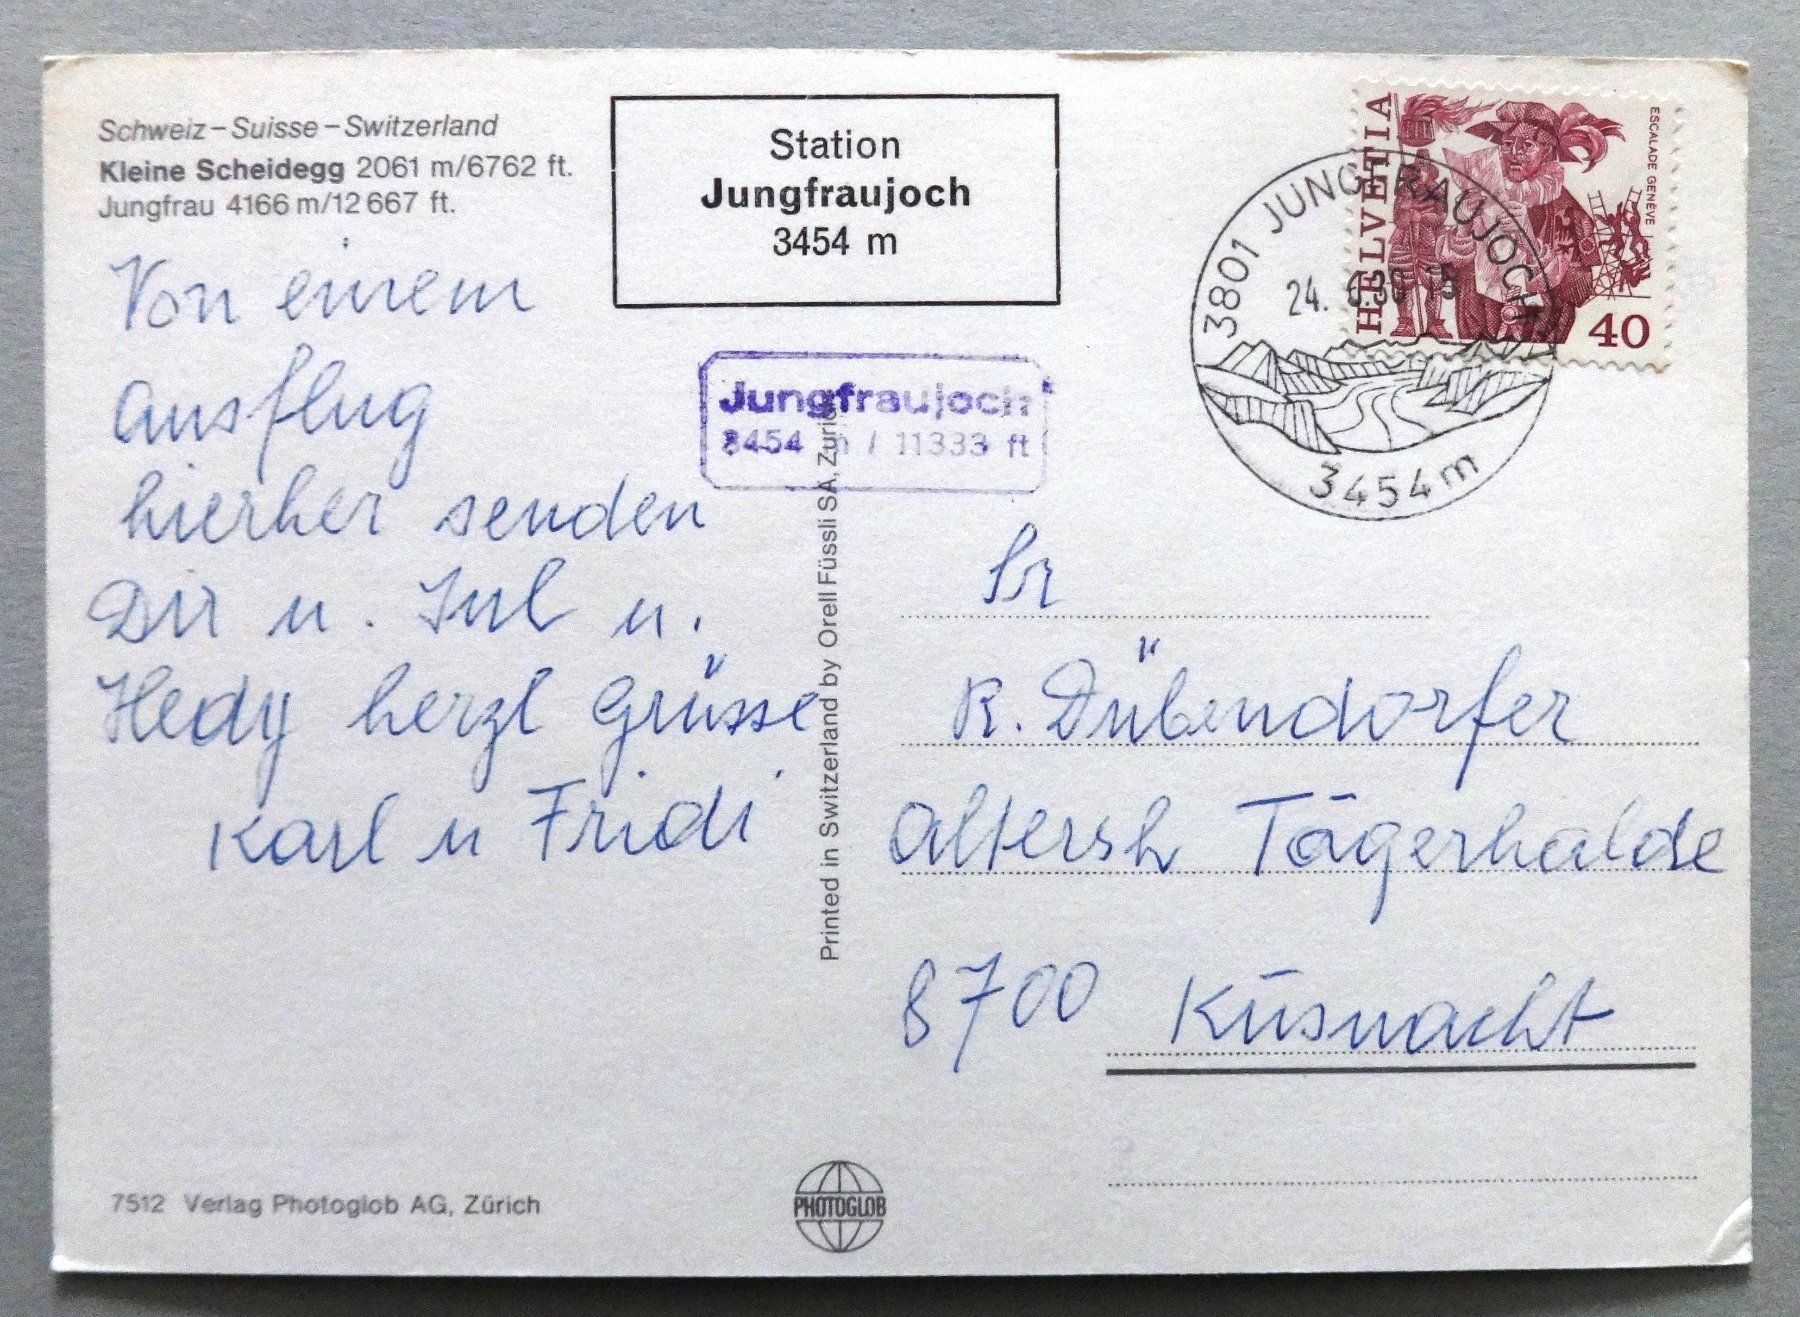 Schweiz – Suisse – Switzerland
Kleine Scheidegg 2061 m/6762 ft.
Jungfrau 4166 m/12 667 ft.
Von einem
Ausflug
hierher senden
Dir u. u.
Hedy herzl Grüsse
Karl u Fridi
7512 Verlag Photoglob AG, Zürich
Station
Jungfraujoch
3454 m
Jungfraujoch
3454 m / 11333 ft
Printed in Switzerland by Orell Füssli SA, Zurich
PHOTOGLOB
3801 JUNGFRAUJOCH
24. 80 15
3454 m
HELVETIA
ESCALADE GENÈVE
40
R. Dübendorfer
Altersh Tägerhalde
8700 Küsnacht